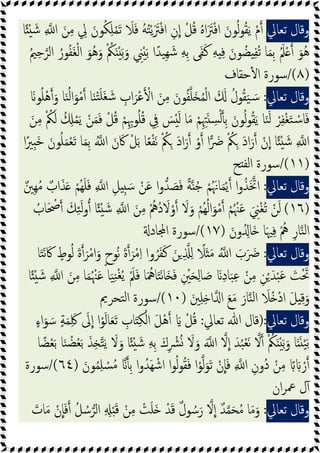 وقال تعالى: أَمْ يَقُولُونَ افْتَرَاهُ قُلْ إِنِ افْتَرَيْتُهُ فَلَا تَمْلِكُونَ لِي مِنَ اللَّهِ شَيْئًا
هُوَ أَعْلَمُ بِمَا تُفِيضُونَ فِيهِ كَفَى بِهِ شَهِيدًا بَيْنِي وَبَيْنَكُمْ وَهُوَ الْغَفُورُ الرَّحِيمُ
(٨)/سورة الأحقاف
وقال تعالى: سَيَقُولُ لَكَ الْمُخَلَّفُونَ مِنَ الْأَعْرَابِ شَغَلَتْنَا أَمْوَالُنَا وَأَهْلُونَا
فَاسْتَغْفِرْ لَنَا يَقُولُونَ بِأَلْسِنَتِهِمْ مَا لَيْسَ فِي قُلُوبِهِمْ قُلْ فَمَنْ يَمْلِكُ لَكُمْ مِنَ
اللَّهِ شَيْئًا إِنْ أَرَادَ بِكُمْ ضَرًّا أَوْ أَرَادَ بِكُمْ نَفْعًا بَلْ كَانَ اللَّهُ بِمَا تَعْمَلُونَ خَبِيرًا
(١١)/سورة الفتح
وقال تعالى: اتَّخَذُوا أَيْمَانَهُمْ جُنَّةً فَصَدُّوا عَنْ سَبِيلِ اللَّهِ فَلَهُمْ عَذَابٌ مُهِينٌ
(١٦) لَنْ تُغْنِيَ عَنْهُمْ أَمْوَالُهُمْ وَلَا أَوْلَادُهُمْ مِنَ اللَّهِ شَيْئًا أُولَئِكَ أَصْحَابُ
النَّارِ هُمْ فِيهَا خَالِدُونَ (١٧)/سورة المجادلة
وقال تعالى: ضَرَبَ اللَّهُ مَثَلًا لِلَّذِينَ كَفَرُوا امْرَأَةَ نُوحٍ وَامْرَأَةَ لُوطٍ كَانَتَا
تَحْتَ عَبْدَيْنِ مِنْ عِبَادِنَا صَالِحَيْنِ فَخَانَتَاهُمَا فَلَمْ يُغْنِيَا عَنْهُمَا مِنَ اللَّهِ شَيْئًا
وَقِيلَ ادْخُلَا النَّارَ مَعَ الدَّاخِلِينَ (١٠)/سورة التحريم
وقال تعالى: (قال الله تعالى: قُلْ يَا أَهْلَ الْكِتَابِ تَعَالَوْا إِلَى كَلِمَةٍ سَوَاءٍ
بَيْنَنَا وَبَيْنَكُمْ أَلَّا نَعْبُدَ إِلَّا اللَّهَ وَلَا نُشْرِكَ بِهِ شَيْئًا وَلَا يَتَّخِذَ بَعْضُنَا بَعْضًا
أَرْبَابًا مِنْ دُونِ اللَّهِ فَإِنْ تَوَلَّوْا فَقُولُوا اشْهَدُوا بِأَنَّا مُسْلِمُونَ (٦٤)/سورة
آل عمران
وقال تعالى: وَمَا مُحَمَّدٌ إِلَّا رَسُولٌ قَدْ خَلَتْ مِنْ قَبْلِهِ الرُّسُلُ أَفَإِنْ مَاتَ